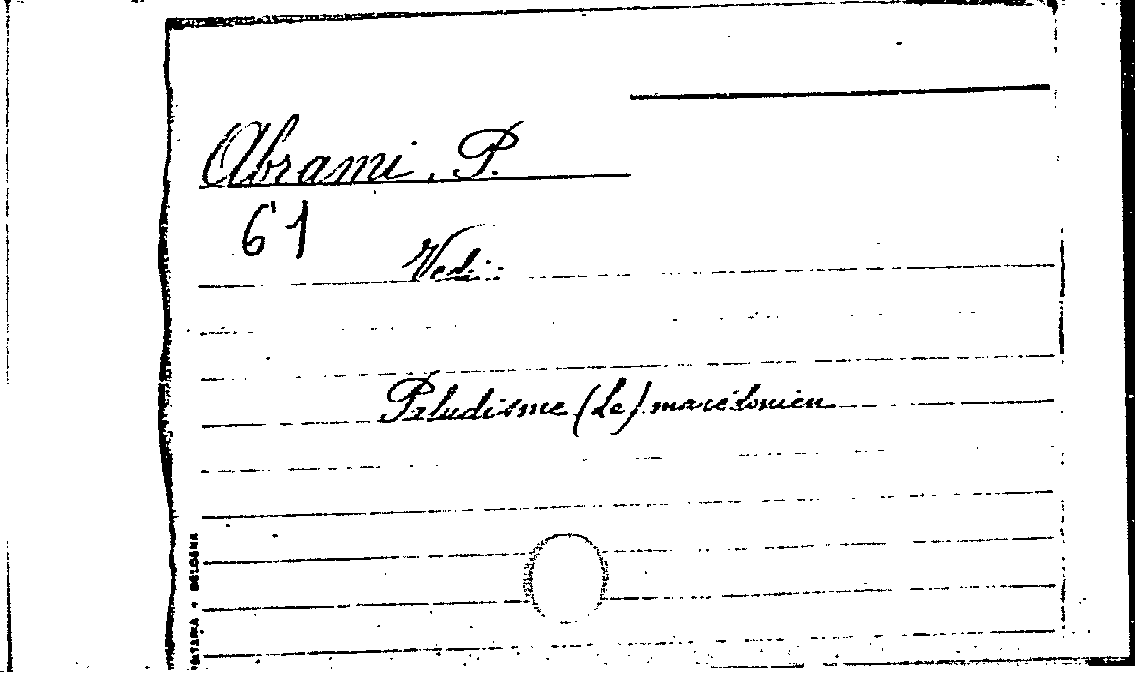 Abrami, P.
61
Vedi:
Paludisme (Le) macédonien
BOLOGNA